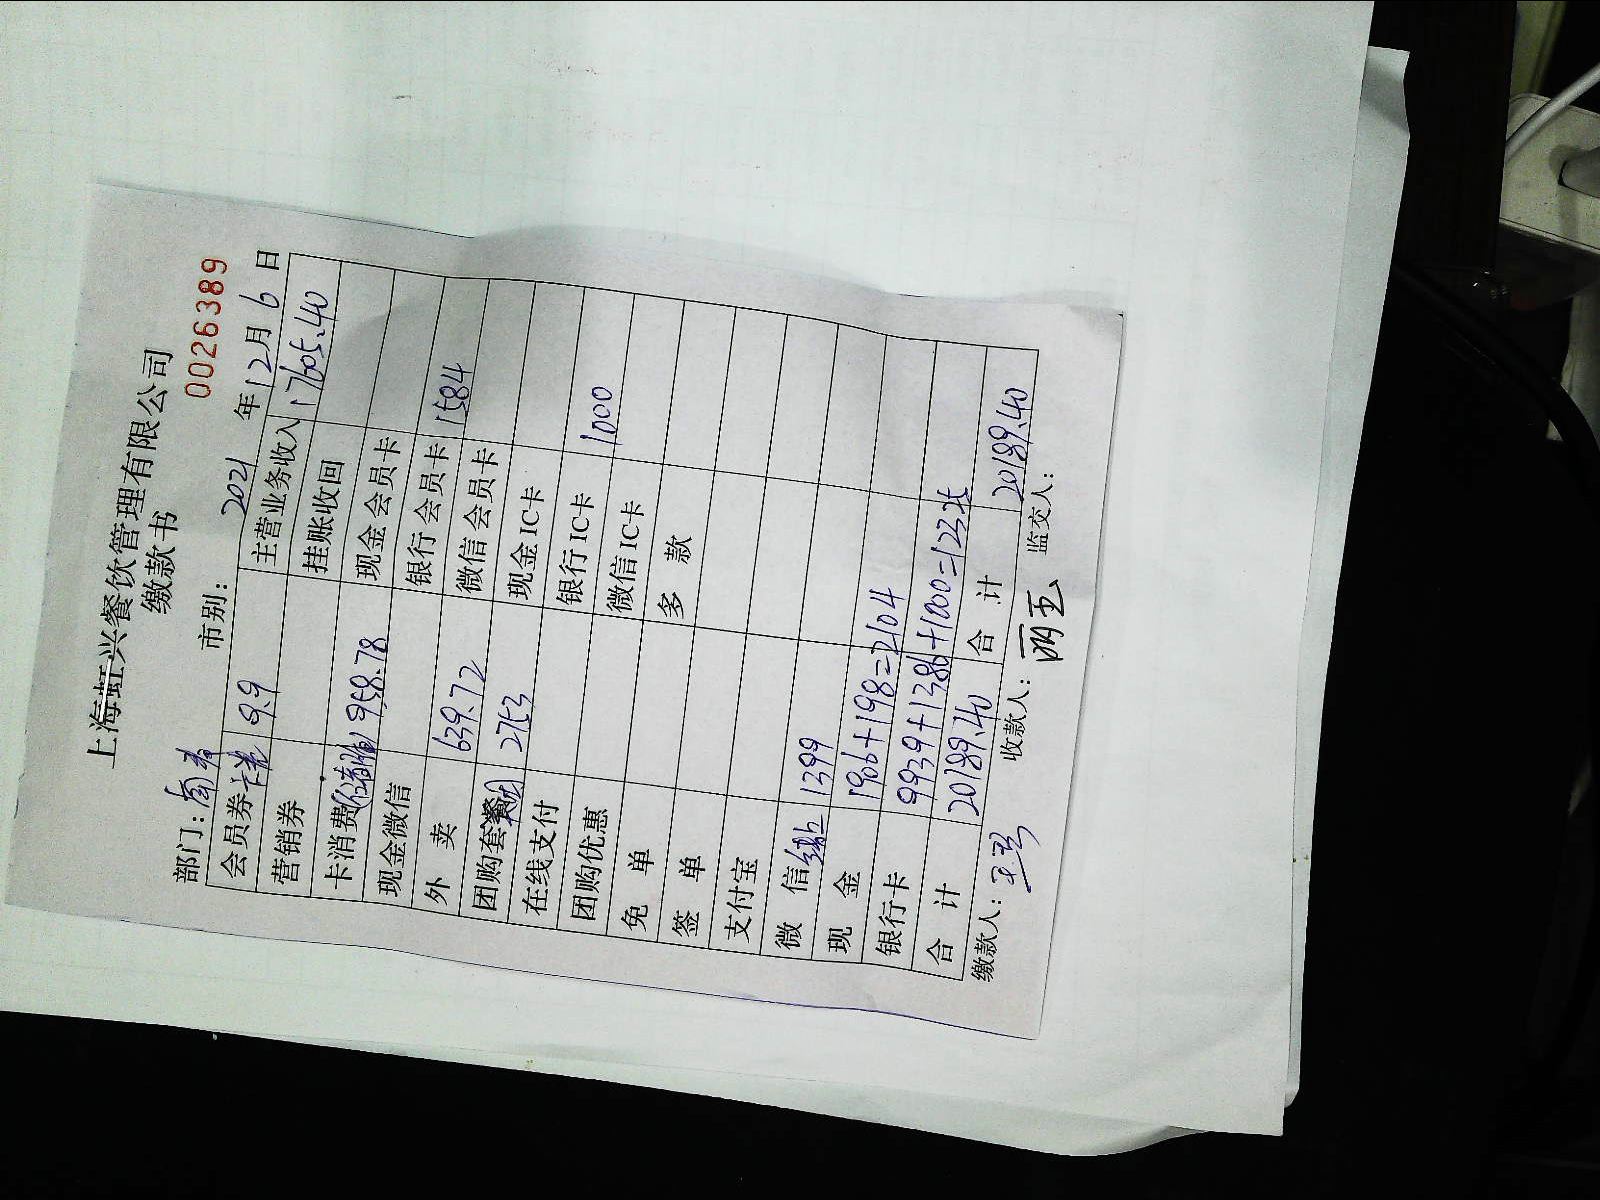 上海虹兴餐饮管理有限公司
缴款书
0026389
部门: 市别: 2021 年 12 月 6 日
会员券 9.9 主营业务收入 17605.40
营销券 挂账收回
卡消费 958.78 现金会员卡
现金微信 银行会员卡 1584
外 卖 639.72 微信会员卡
团购套餐 2753 现金IC卡
在线支付 银行IC卡 1000
团购优惠 微信IC卡
免 单 多 款
签 单
支付宝
微 信 1399
现 金 1906+198=2104
银行卡 9939+1386+1000=12325
合 计 20189.40 合 计 20189.40
缴款人: 收款人: 监交人: